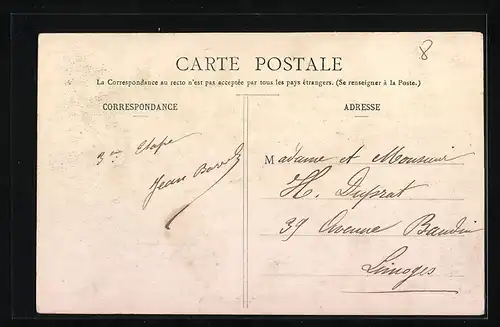 8
CARTE POSTALE
La Correspondance au recto n'est pas acceptée par tous les pays étrangers. (Se renseigner à la Poste.)
CORRESPONDANCE
ADRESSE
3me Etape
Jean
Madame et Monsieur
H. Duprat
37 Avenue Baudin
Limoges